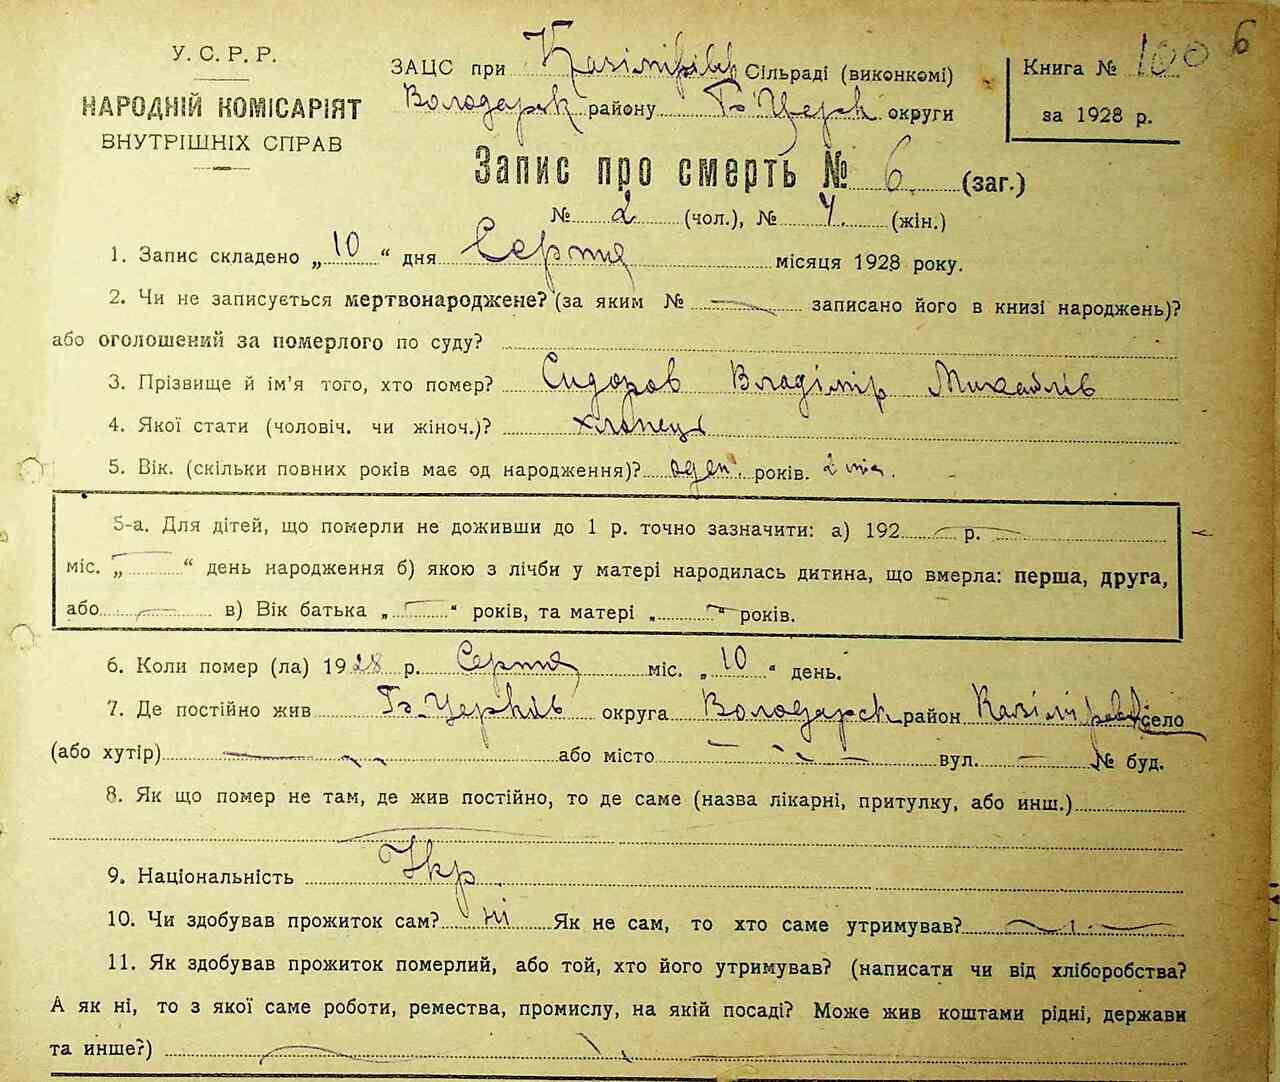 6
У. С. Р. Р.
НАРОДНІЙ КОМІСАРІЯТ
ВНУТРІШНІХ СПРАВ
ЗАЦС при Казімірівс Сільраді (виконкомі)
Володарск району Б-Церк округи
Книга № 100
за 1928 р.
Запис про смерть № 6. (заг.)
№ 2 (чол.), № 4. (жін.)
1. Запис складено „ 10 “ дня Серпня місяця 1928 року.
2. Чи не записується мертвонароджене? (за яким № — записано його в книзі народжень)?
або оголошений за померлого по суду?
3. Прізвище й ім'я того, хто помер? Сидоров Владімір Михайлів
4. Якої стати (чоловіч. чи жіноч.)? хлопець
5. Вік. (скільки повних років має од народження)? оден. років. 2 міс.
5-а. Для дітей, що померли не доживши до 1 р. точно зазначити: а) 192 — р. —
міс. „ — “ день народження б) якою з лічби у матері народилась дитина, що вмерла: перша, друга,
або — в) Вік батька „ — “ років, та матері „ — “ років.
6. Коли помер (ла) 1928 р. Серпня міс. „ 10 “ день.
7. Де постійно жив Б-Церків округа Володарск район Казімірівс село
(або хутір) — або місто — вул. — № буд.
8. Як що помер не там, де жив постійно, то де саме (назва лікарні, притулку, або инш.)
9. Національність Укр.
10. Чи здобував прожиток сам? ні Як не сам, то хто саме утримував? —
11. Як здобував прожиток померлий, або той, хто його утримував? (написати чи від хліборобства?
А як ні, то з якої саме роботи, ремества, промислу, на якій посаді? Може жив коштами рідні, держави
та инше?) —